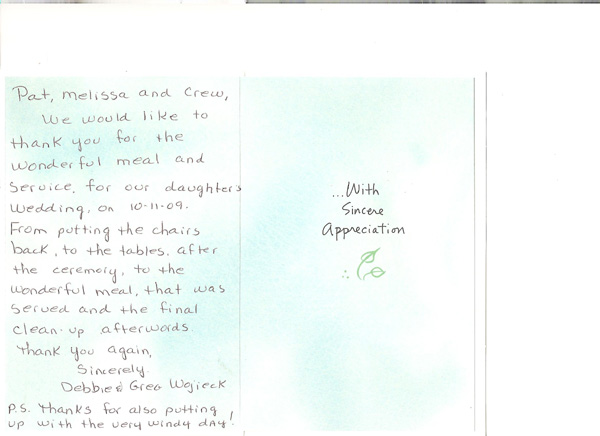 Pat, Melissa and Crew,
We would like to
thank you for the
wonderful meal and
service, for our daughters
wedding, on 10-11-09.
From putting the chairs
back, to the tables, after
the ceremoiy, to the
wonderful meal, that was
served and the final
clean-up afterwords.
Thank you again,
Sincerely
Debbie & Greg Wojieck
P.S. Thanks for also putting
up with the very windy day!
...With
Sincere
Appreciation